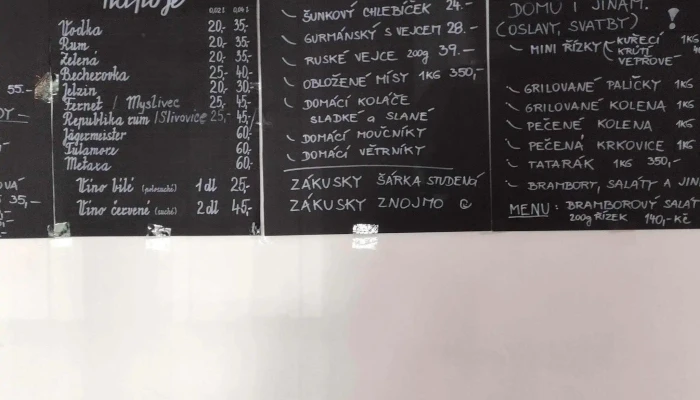 55.-
35,-
nápoje
0,02 l 0,04 l
Vodka 20,- 35,-
Rum 20,- 35,-
Zelená 20,- 35,-
Becherovka 25,- 40,-
Jelzin 20,- 30,-
Fernet / Myslivec 25,- 45,-
Republika rum / Slivovice 25,- 45,-
Jägermeister 60,-
Tulamore 60,-
Metaxa 60,-
Víno bílé (polosuché) 1 dl 25,-
Víno červené (suché) 2 dl 45,-
ŠUNKOVÝ CHLEBÍČEK 24.-
GURMÁNSKÝ S VEJCEM 28.-
RUSKÉ VEJCE 200g 39.-
OBLOŽENÉ MÍSY 1KG 350,-
DOMÁCÍ KOLÁČE
SLADKÉ a SLANÉ
DOMÁCÍ MOUČNÍKY
DOMÁCÍ VĚTRNÍKY
ZÁKUSKY ŠÁRKA STUDENÁ
ZÁKUSKY ZNOJMO
DOMŮ I JINAM.
(OSLAVY, SVATBY) !
MINI ŘÍZKY KUŘECÍ 1KG
KRŮTÍ
VEPŘOVÉ
GRILOVANÉ PALIČKY 1KG
GRILOVANÉ KOLENA 1KG
PEČENÉ KOLENA 1KG
PEČENÁ KRKOVICE 1KG
TATARÁK 1KG 350,-
BRAMBORY, SALÁTY A JIN
MENU : BRAMBOROVÝ SALÁT
200g ŘÍZEK 140,-KČ